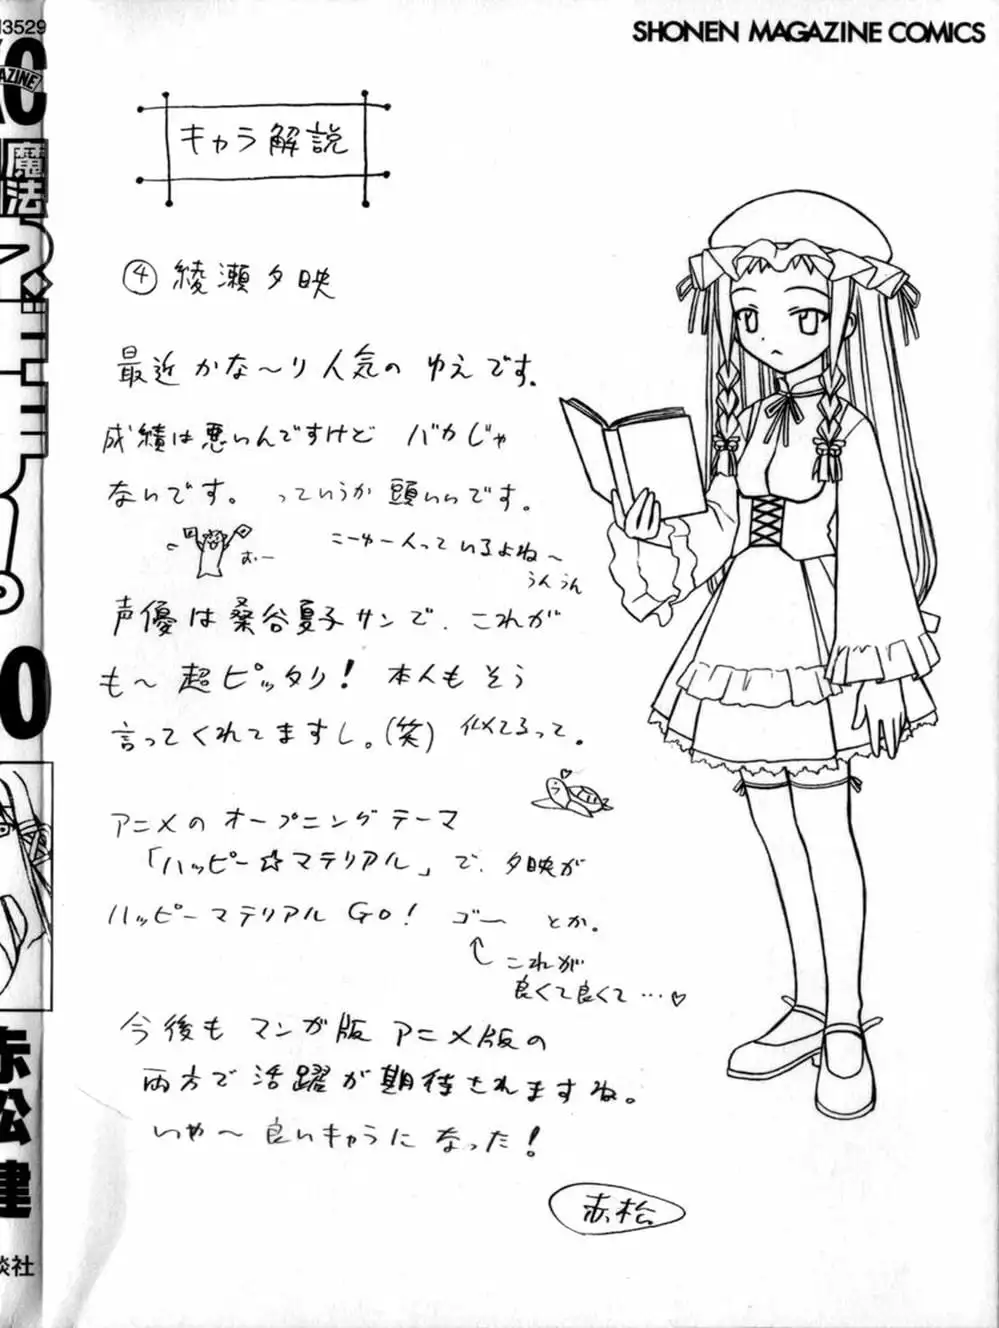 SHONEN MAGAZINE COMICS
3529
魔法
0
赤松健
談社
キャラ解説
④ 綾瀬夕映
最近かな〜り人気の ゆえです。
成績は悪いんですけど バカじゃ
ないです。 っていうか頭いいです。
こーゆー人っているよね〜
うんうん
おぉー
声優は桑谷夏子サンで、これが
も〜超ピッタリ! 本人もそう
言ってくれてますし。(笑) 似てるって。
アニメのオープニングテーマ
「ハッピー☆マテリアル」で、夕映が
ハッピーマテリアル GO! ゴー とか。
これが
良くて良くて…♡
今後もマンガ版アニメ版の
両方で活躍が期待されますね。
いや〜良いキャラになった!
赤松